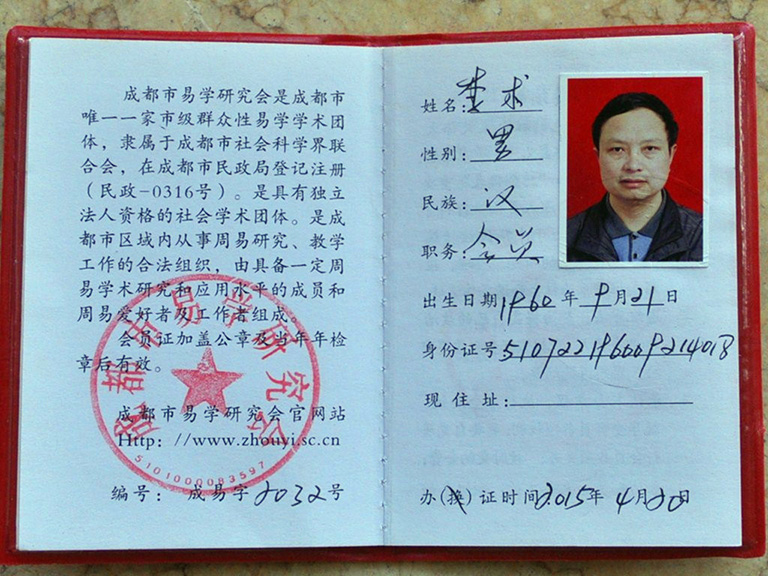 成都市易学研究会是成都市
唯一一家市级群众性易学学术团
体，隶属于成都市社会科学界联
合会，在成都市民政局登记注册
（民政-0316号）。是具有独立
法人资格的社会学术团体。是成
都市区域内从事周易研究、教学
工作的合法组织，由具备一定周
易学术研究和应用水平的成员和
周易爱好者及工作者组成。
会员证加盖公章及当年年检
章后有效。
成都市易学研究会官网站
Http: //www.zhouyi.sc.cn
编号：成易字2032号
成都市易学研究会
5101000083597
姓名:李术
性别:男
民族:汉
职务:会员
出生日期1960年9月21日
身份证号510722196009214018
现住址:
办(换)证时间2015年4月20日